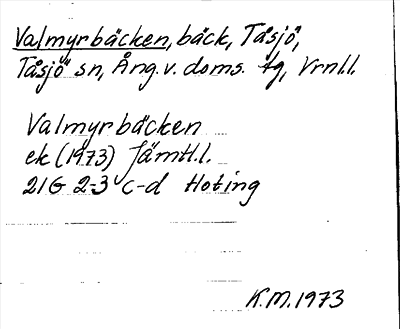 Valmyrbäcken, bäck, Tåsjö,
Tåsjö sn, Ång. v. doms. tg, Vrnl.l.
Valmyrbäcken
ek (1973) Jämtl.l.
21G 2-3 c-d Hoting
K.M. 1973